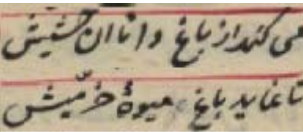 می کند از باغ دانا آن حشیش
تا نماید باغ و میوهٔ خرّمیش